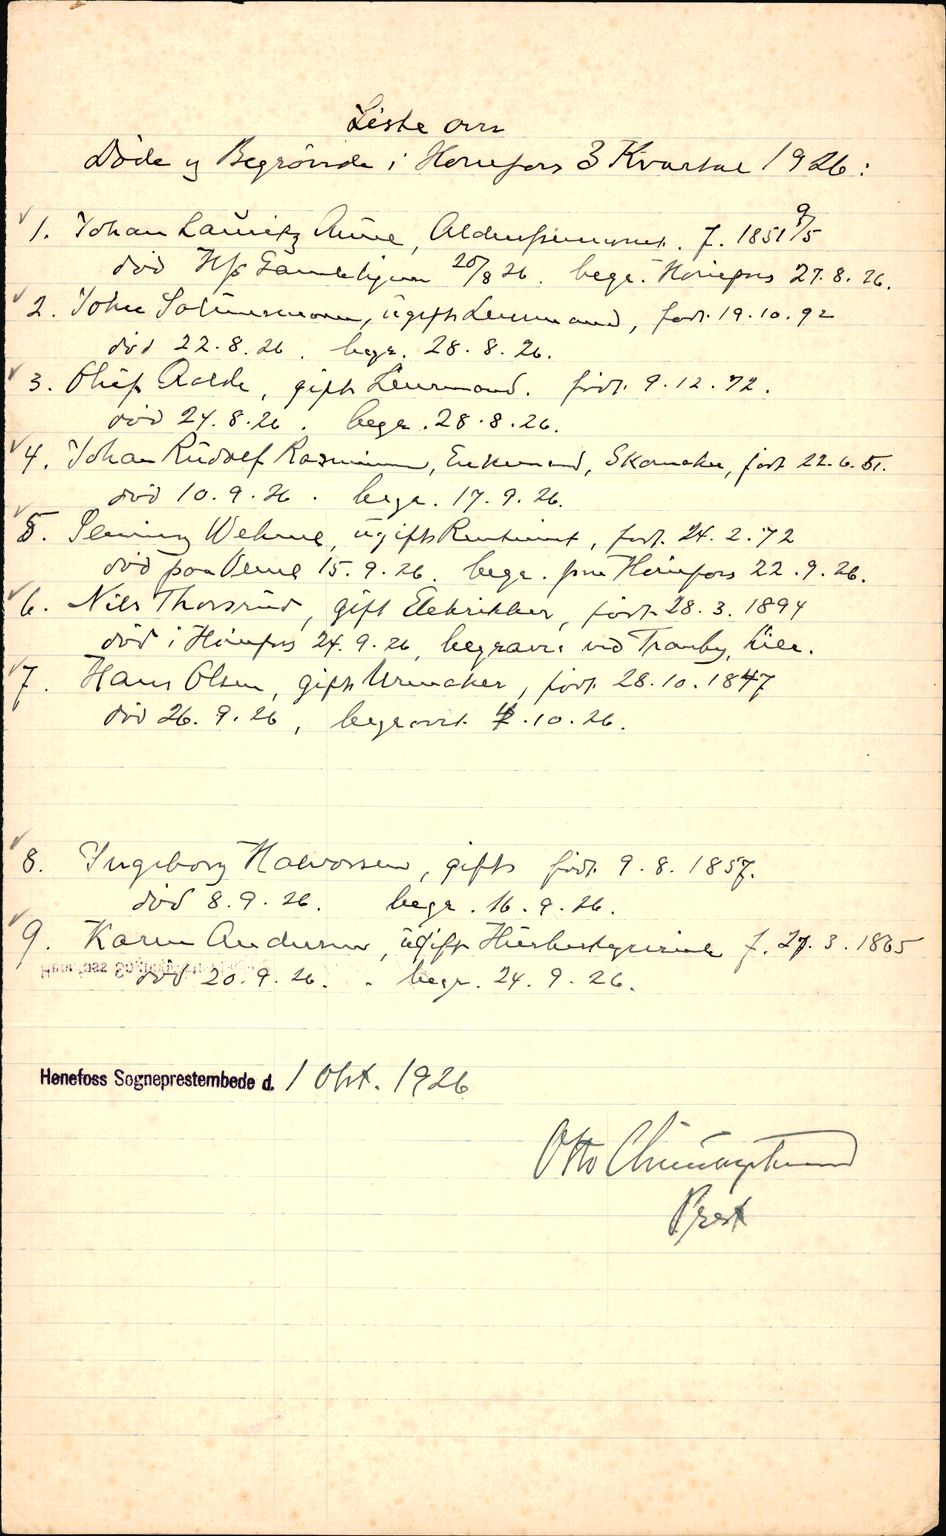 Liste over
Døde og Begravede i Hønefoss 3 Kvartal 1926:
1. Johan Lauritz Aune, f. 1851 9/5
død 20/8 26. begr. Hønefoss 27.8.26.
2. John, ugift Leiermand, født 19.10.92
død 22.8.26. begr. 28.8.26.
3. Oluf, gift Leiermand. født 9.12.72.
død 24.8.26. begr. 28.8.26.
4. Johan Rudolf Rasmussen, Enkemand, Skomaker, født 22.6.51.
død 10.9.26. begr. 17.9.26.
5. ugift, født 24.2.72
død paa Veme 15.9.26. begr. paa Hønefoss 22.9.26.
6. Nils Thorsrud, gift Elektriker, født 28.3.1894
død i Hønefoss 24.9.26, begravet ved Tranby, Lier.
7. Hans Olsen, gift Urmaker, født 28.10.1847
død 26.9.26, begravet .10.26.
8. Ingeborg Halvorsen, gift født 9.8.1857.
død 8.9.26. begr. 16.9.26.
9. Karen Andersen, ugift Husbestyrerinde f. 27.3.1865
død 20.9.26. begr. 24.9.26.
Hønefoss Sogneprestembede d. 1 Okt. 1926
Otto
Prest